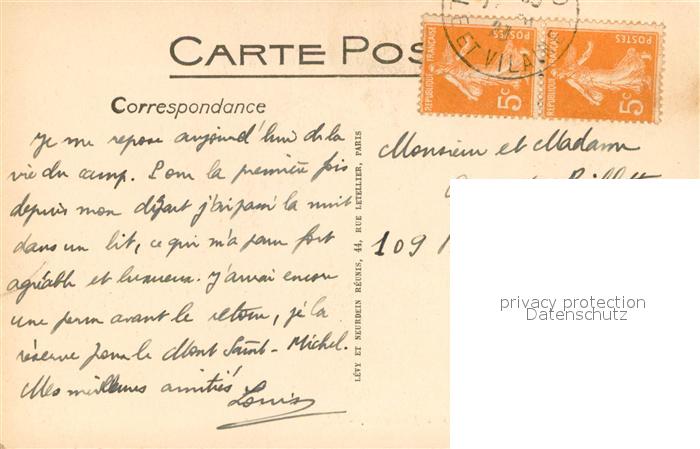 CARTE POS
ET VILA
REPUBLIQUE FRANÇAISE
POSTES
5c
REPUBLIQUE FRANÇAISE
POSTES
5c
Correspondance
Je me repose aujourd'hui de la
vie du camp. Pour la première fois
depuis mon départ j'ai passé la nuit
dans un lit, ce qui m'a paru fort
agréable et luxueux. J'aurai encore
une perm avant le retour, je la
réserve pour le Mont Saint-Michel.
Mes meilleures amitiés
Louis
LÉVY ET NEURDEIN RÉUNIS, 44, RUE LETELLIER, PARIS
Monsieur et Madame
109
privacy protection
Datenschutz